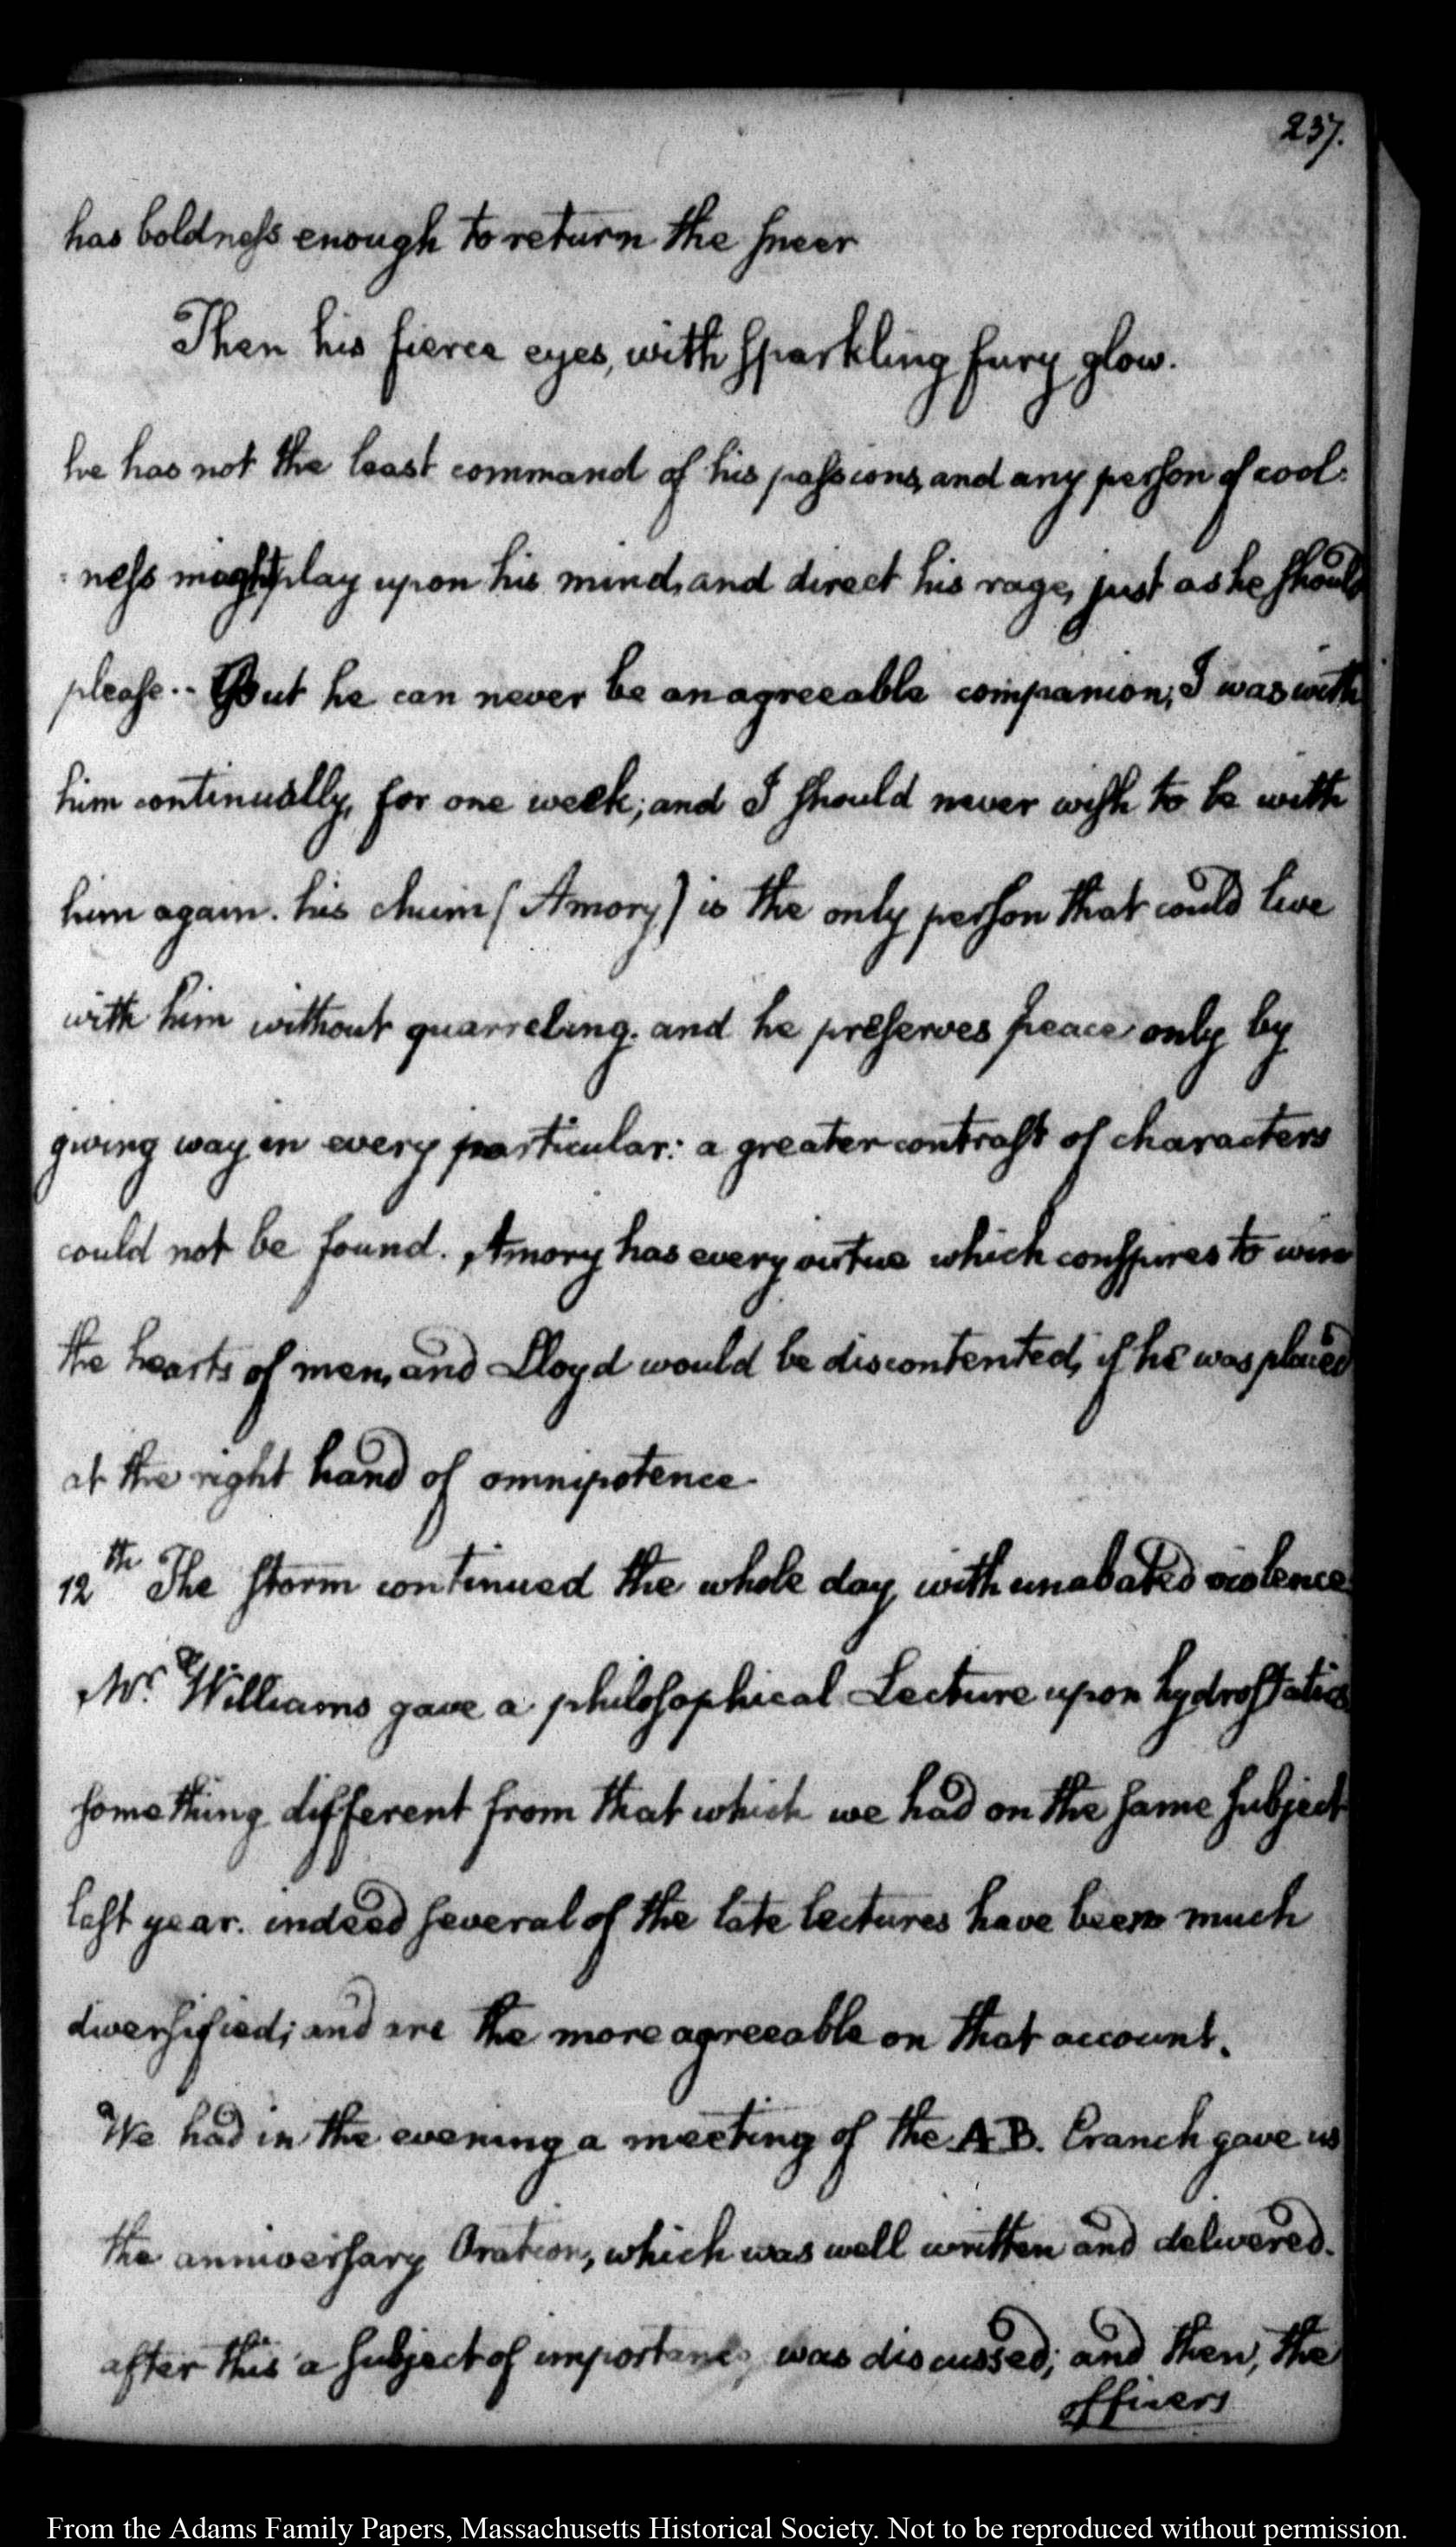 237.
has boldneſs enough to return the ſneer
Then his fierce eyes, with ſparkling fury glow.
he has not the least command of his paſsions, and any perſon of cool:
:neſs might play upon his mind, and direct his rage, just as he ſhould
pleaſe.. But he can never be an agreeable companion; I was with
him continually, for one week; and I ſhould never wiſh to be with
him again. his chum (Amory) is the only perſon that could live
with him without quarreling. and he preſerves peace only by
giving way in every particular: a greater contraſt of characters
could not be found. Amory has every virtue which conſpires to win
the hearts of men, and Lloyd would be discontented, if he was placed
at the right hand of omnipotence.
12th The ſtorm continued the whole day, with unabated violence.
Mr. Williams gave a philoſophical Lecture upon hydroſtatics
ſomething different from that which we had on the ſame ſubject
laſt year. indeed ſeveral of the late lectures have been much
diverſified; and are the more agreeable on that account.
We had in the evening a meeting of the A B. Cranch gave us
the anniverſary Oration, which was well written and delivered.
after this a ſubject of importance, was discussed; and then, the
officers
From the Adams Family Papers, Massachusetts Historical Society. Not to be reproduced without permission.